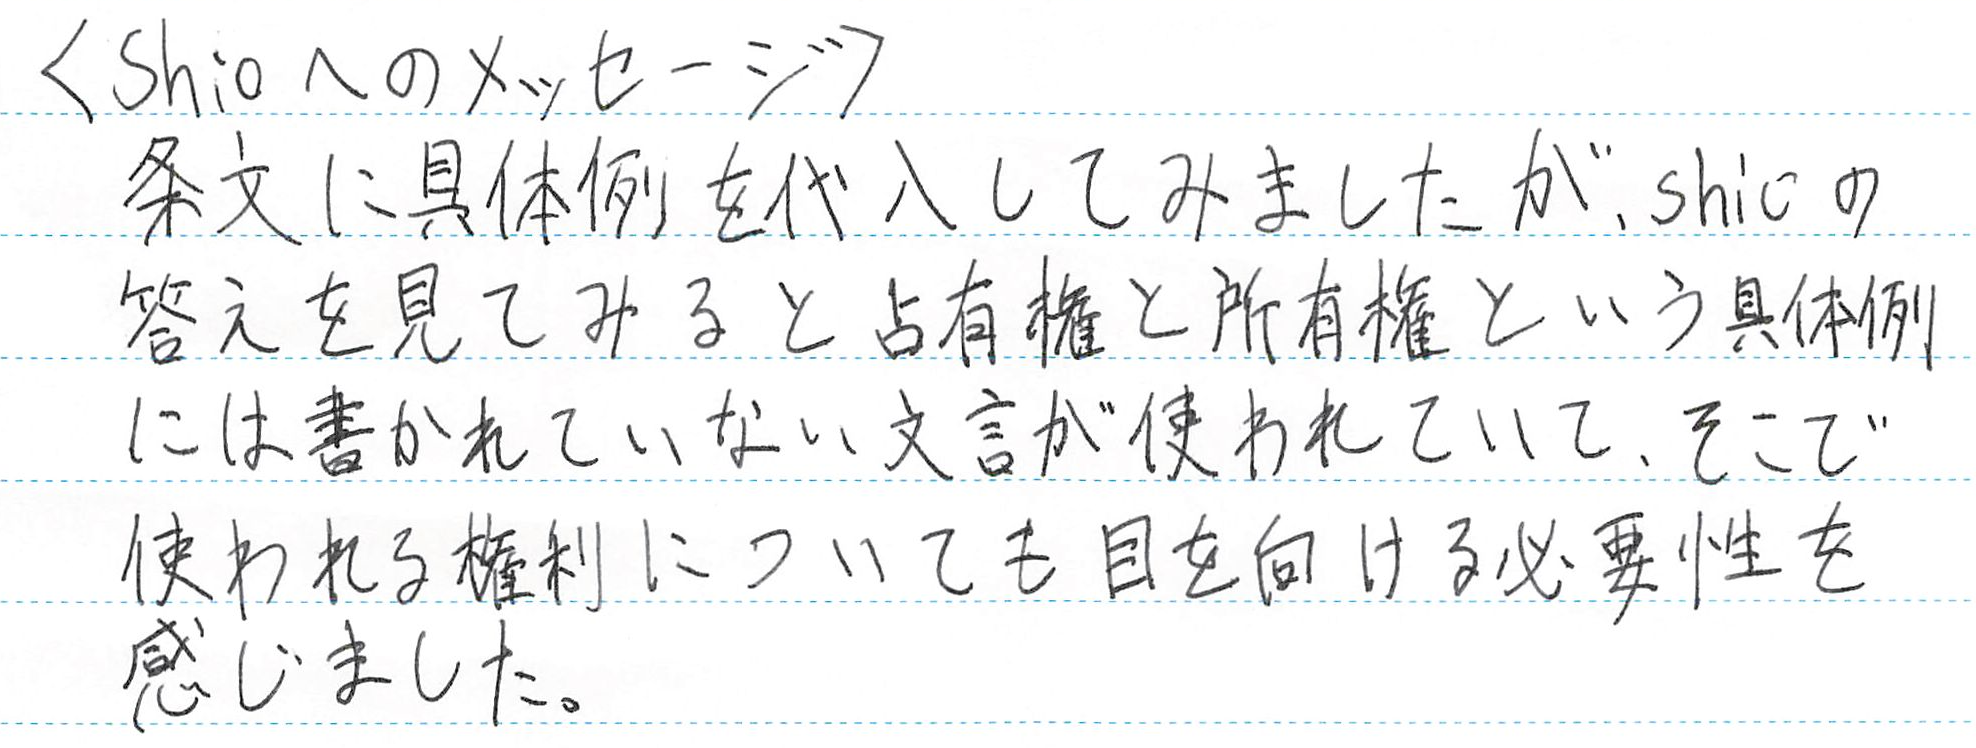 <Shioへのメッセージ>
条文に具体例を代入してみましたが、shioの
答えを見てみると占有権と所有権という具体例
には書かれていない文言が使われていて、そこで
使われる権利についても目を向ける必要性を
感じました。